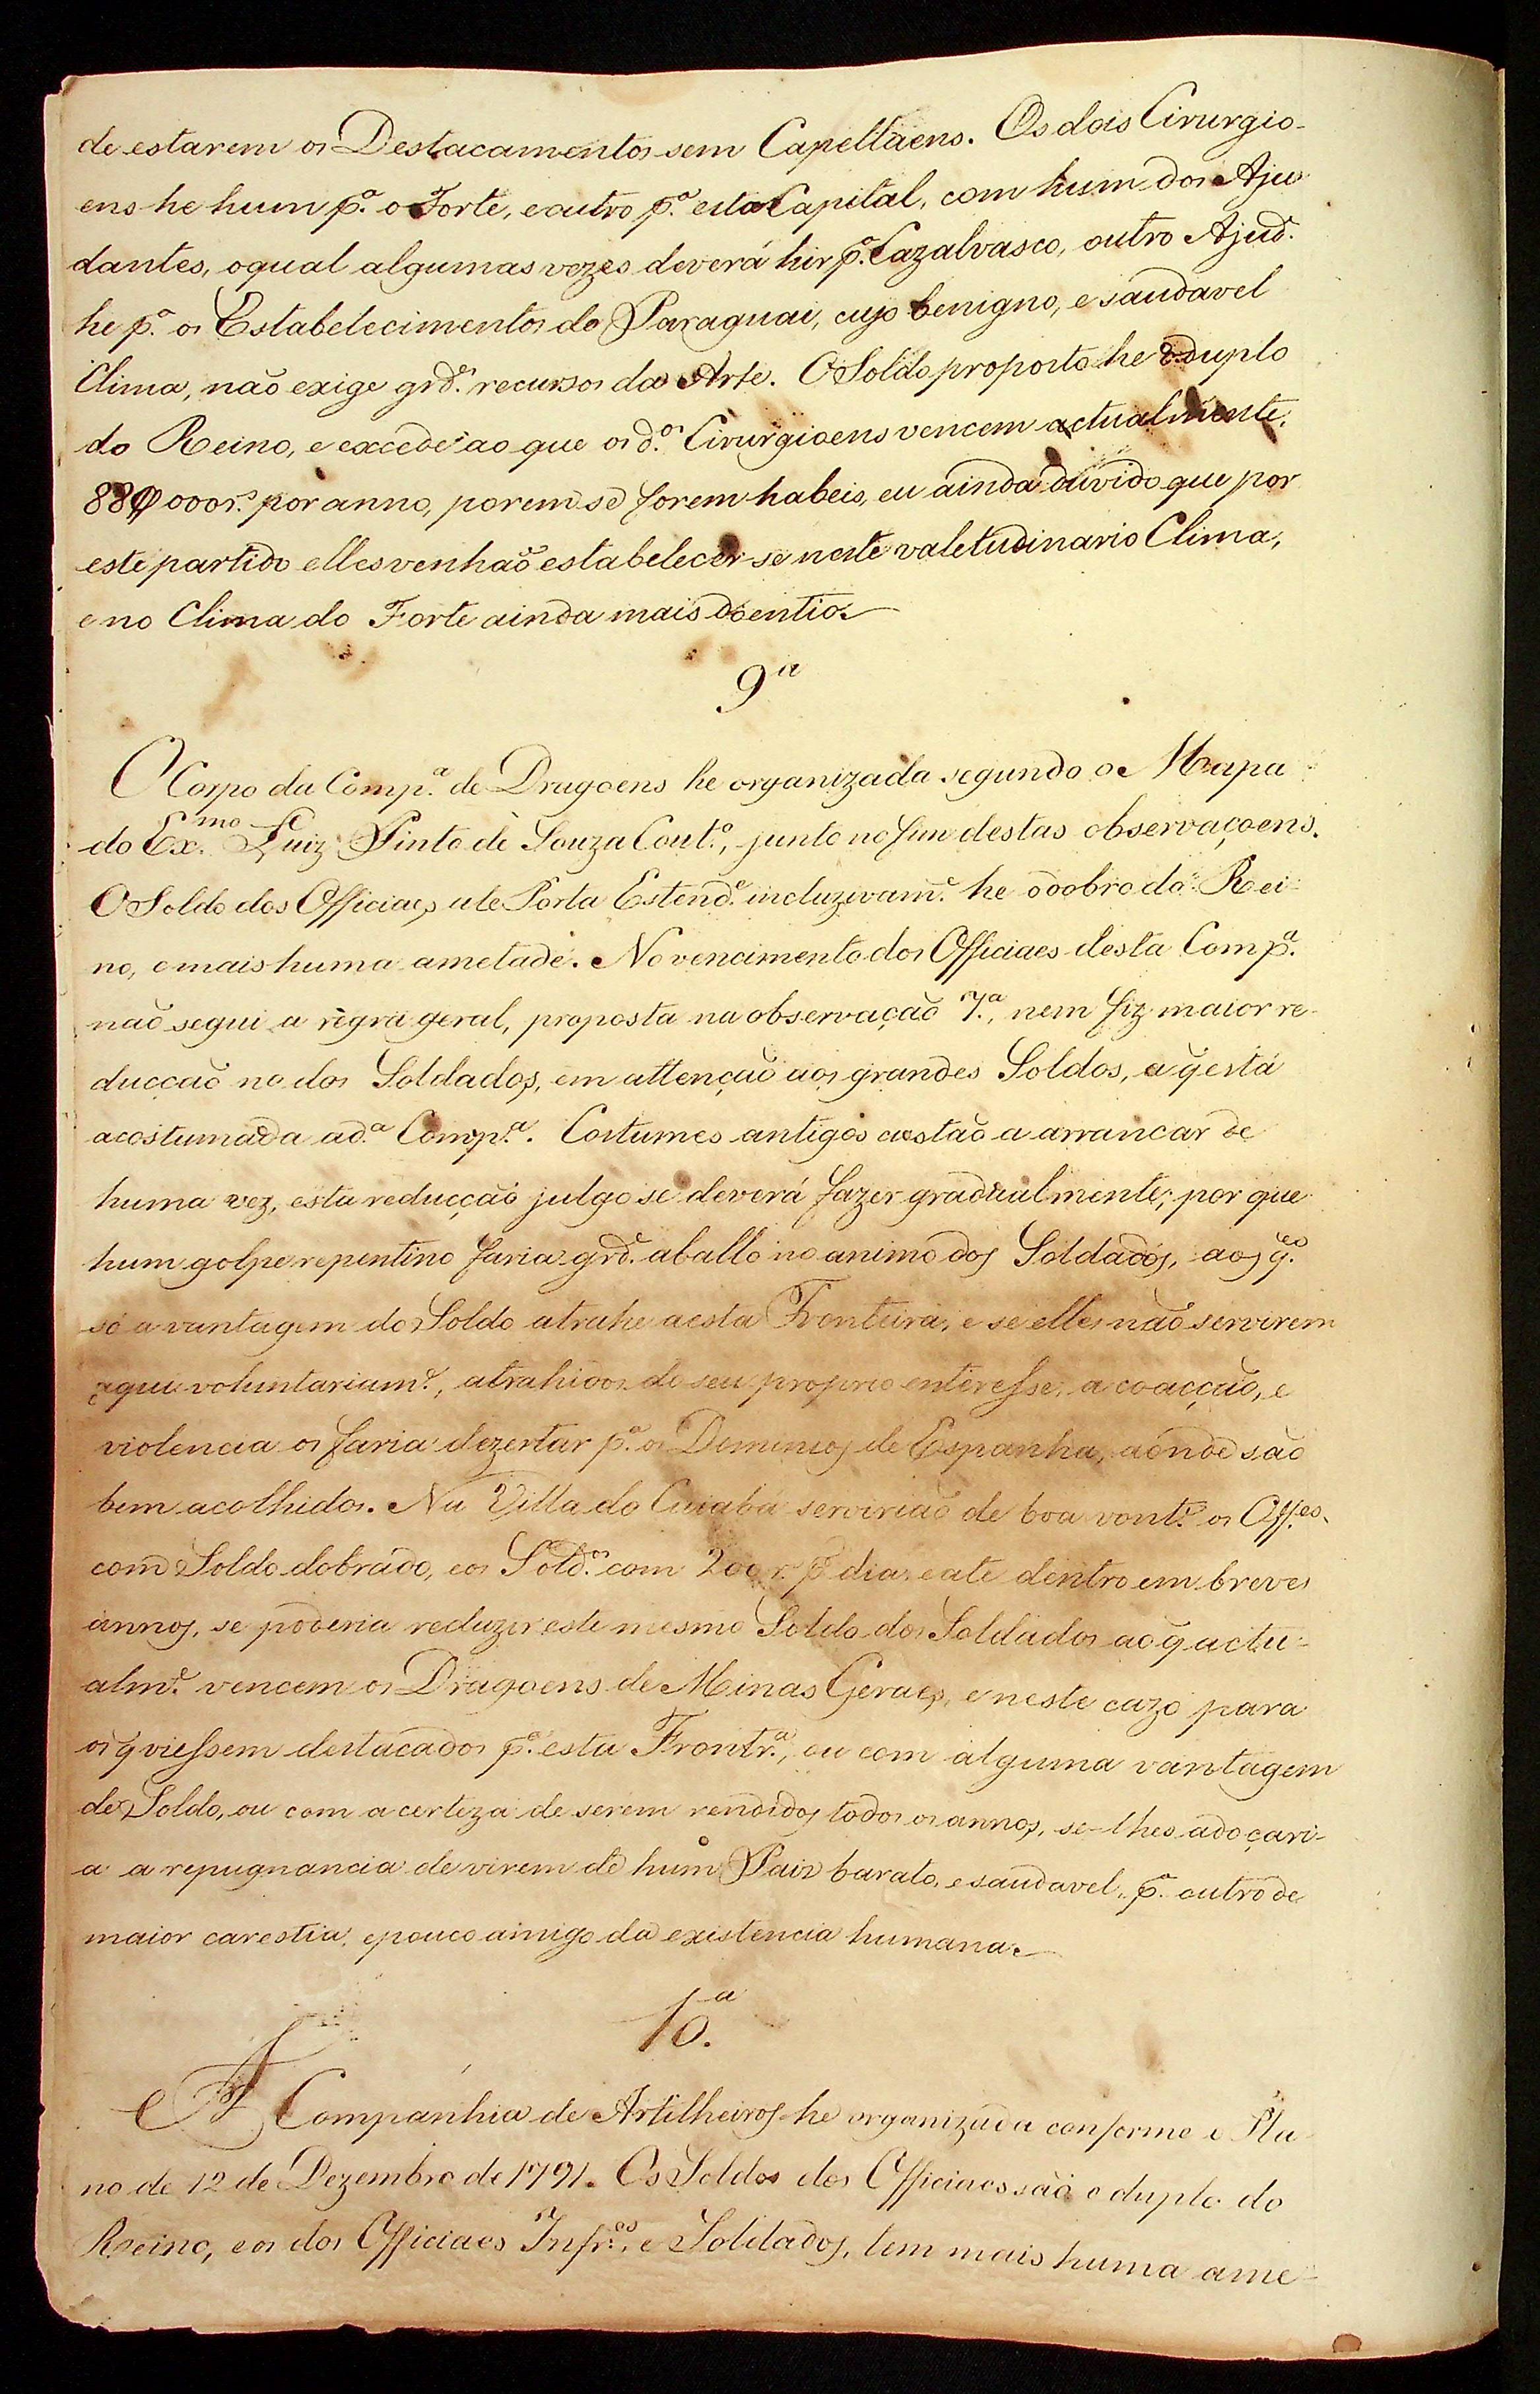 de estarem os Destacamentos sem Capellaens. Os dois Cirurgio-
ens he hum p.ª o Forte, e outro p.ª esta Capital, com hum dos Aju
dantes, o qual algumas vezes deverá hir p.ª Cazalvasco, outro Ajud.
he p.ª os Estabelecimentos do Paraguai, cujo benigno, e saudavel
Clima, não exige grd.ˢ recursos da Arte. O Soldo proposto he o duplo
do Reino, e excede ao que os d.ᵒˢ Cirurgioens vencem actualmente,
88$000r.ˢ por anno, porem se forem habeis, eu ainda duvido que por
este partido elles venhaõ estabelecer-se neste valetudinario Clima,
e no Clima do Forte ainda mais doentio.
9ª
O Corpo da Comp.ª de Dragoens he organizada segundo o Mapa
do Ex.ᵐᵒ Luiz Pinto de Souza Cout.º, junto no fim destas observaçoens.
O Soldo dos Officiaes ate Porta Estend.ᵉ incluzivam.ᵉ he o dobro do Rei-
no, e mais huma ametade. No vencimento dos Officiaes desta Comp.ª
naõ segui a regra geral, proposta na observaçaõ 7.ª, nem fiz maior re-
ducçaõ no dos Soldados, em attençaõ aos grandes Soldos, a q̃ está
acostumada a d.ª Comp.ª. Costumes antigos custaõ a arrancar de
huma vez, esta reducçaõ julgo se deverá fazer gradualmente; por que
hum golpe repentino faria grd.ᵉ aballo no animo dos Soldados, aos q.ᵉˢ
só a vantagem do Soldo atrahe a esta Fronteira, e se elles naõ servirem
aqui voluntariam.ᵉ, atrahidos do seu proprio enteresse, a coacçaõ, e
violencia os faria dezertar p.ª os Dominios de Espanha, aonde saõ
bem acolhidos. Na Villa do Cuiabá serviriaõ de boa vont.ᵉ os Off.ᵉˢ
com Soldo dobrado, e os Sold.ᵒˢ com 200 r.ˢ p.ʳ dia, e ate dentro em breves
annos, se poderia reduzir este mesmo Soldo dos Soldados ao q̃ actu-
alm.ᵉ vencem os Dragoens de Minas Geraes, e neste cazo para
os q̃ viessem destacados p.ª esta Frontr.ª, ou com alguma vantagem
de Soldo, ou com a certeza de serem rendidos todos os annos, se-lhes adoçari-
a a repugnancia de virem de hum Paiz barato, e saudavel, p.ª outro de
maior carestia, e pouco amigo da existencia humana.
10.ª
A Companhia de Artilheiros he organizada conforme o Pla
no de 12 de Dezembro de 1791. Os Soldos dos Officiaes saõ o duplo do
Reino, e os dos Officiaes Infr.ᵉˢ, e Soldados, tem mais huma ame-